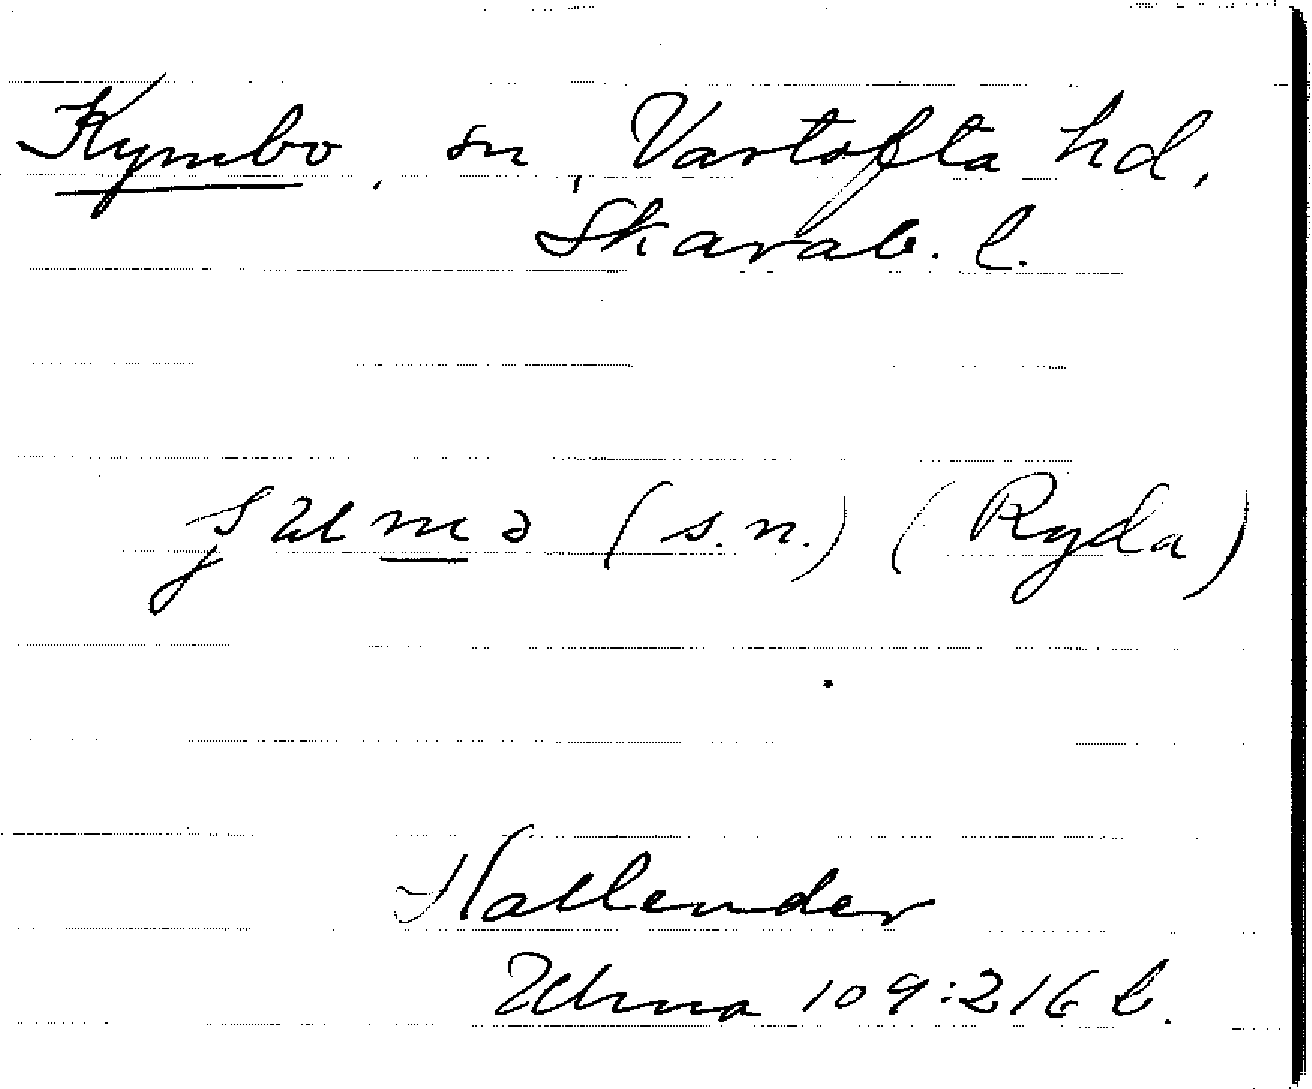 Kymbo, sn, Vartofta hd,
Skarab. l.
(s.n.) (Ryda)
Hallender
Ulma 109:216 b.